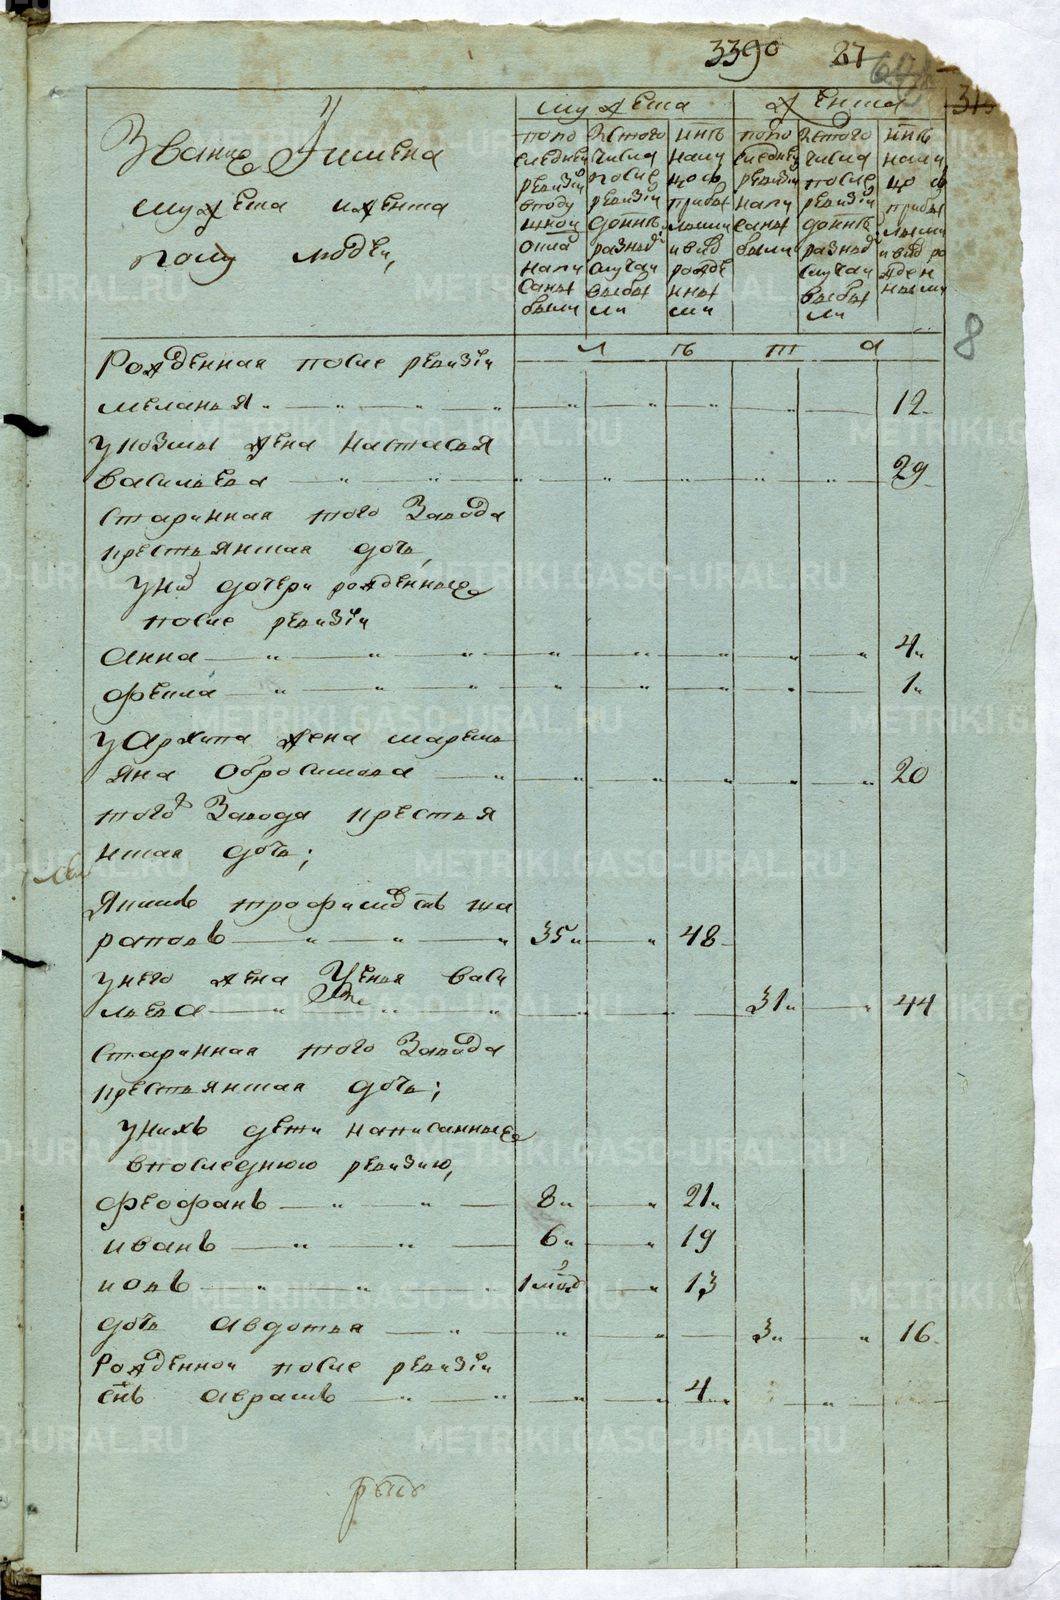 3390 27
31
8
Звание Iимена
мужеска иженска
полу людей,
мужеска
женска
попо следней ревизии вгоду июня онаго написаны были
Изтого числа после ревизии доныне разными случаи выбыли
ныне налицо сь прибылыми и вновь рожденными
попо следней ревизии написаны были
Изтого числа после ревизии доныне разными случаи выбыли
ныне налицо сь прибылыми и вновь рожденными
л ѣ т а
Рожденная после ревизiи
меланья 12
укозмы жена настасья
васильева 29
старинная того завода
крестьянская дочь,
униx дочери рожденные
после ревизiи
анна 4
фекла 1
уархипа жена маремь
яна обросимова 20
того завода крестья
нская дочь;
Якимъ трофимовъ сынъ та
рановъ 35 48
унего жена васи
льева 31 44
старинная того завода
крестьянская дочь;
унихъ дети написанные
впоследнюю ревизию,
феофанъ 8 21
иванъ 6 19
иовъ 13
дочь авдотья 3 16
Рожденной после ревизiи
снъ аврамъ 4
METRIKI.GASO-URAL.RU